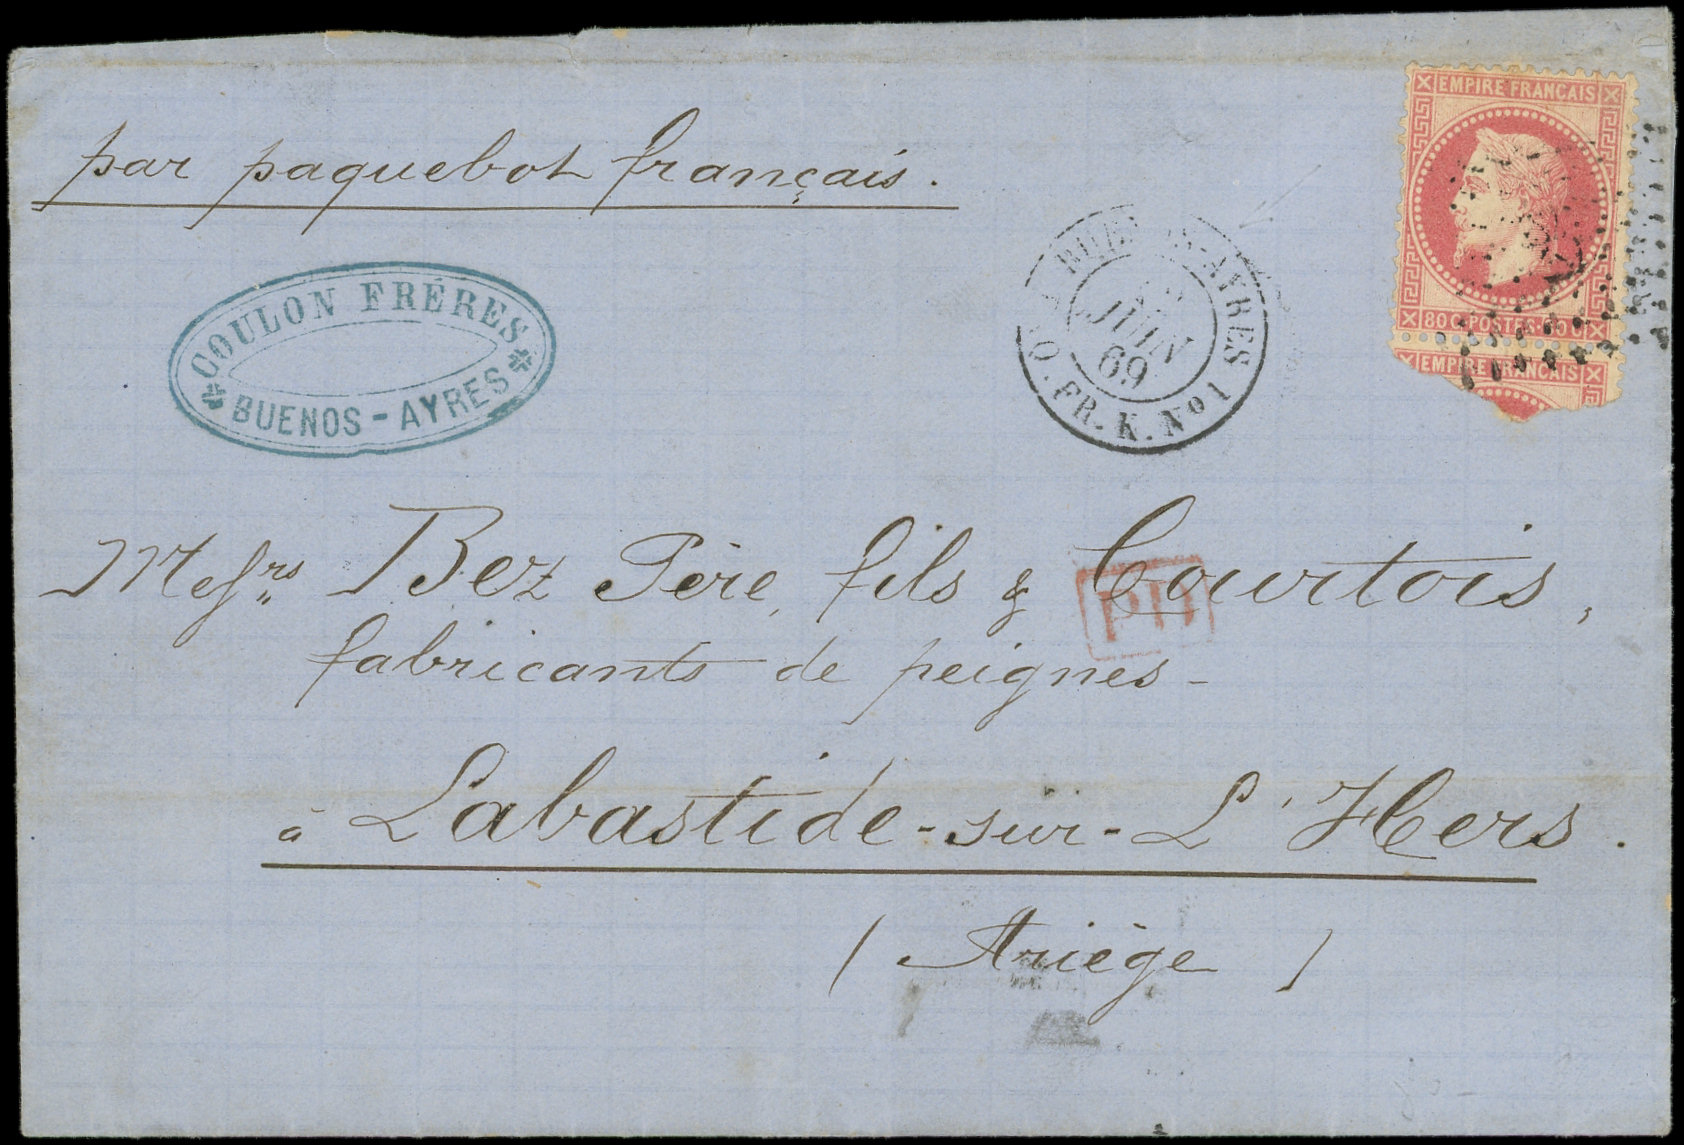 par paquebot français.
COULON FRÉRES
BUENOS-AYRES
AYRES
JUIN
69
Q. FR. K. No 1
EMPIRE FRANCAIS
80 C POSTES 80 C
EMPIRE FRANCAIS
Messrs Bez Père, fils & Courtois,
PD
fabricants de peignes-
à Labastide-sur-L'Hers.
(Ariège)